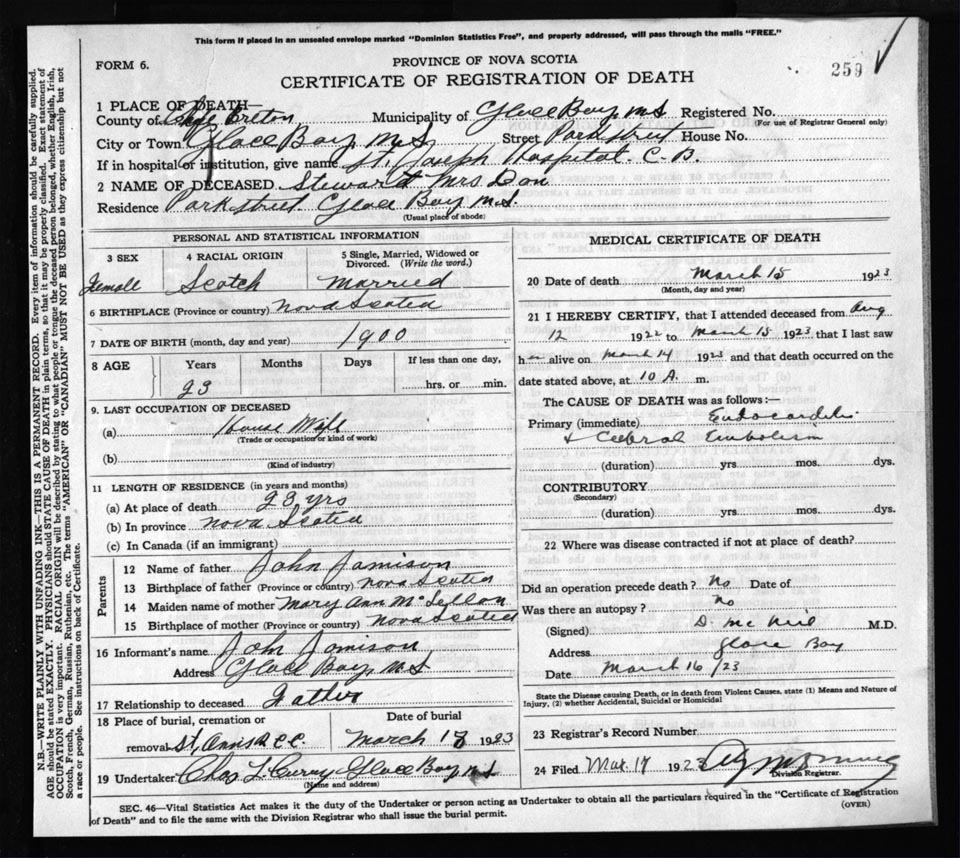 This form if placed in an unsealed envelope marked "Dominion Statistics Free", and properly addressed, will pass through the mails "FREE."
FORM 6.
PROVINCE OF NOVA SCOTIA
259
CERTIFICATE OF REGISTRATION OF DEATH
1 PLACE OF DEATH—
County of Cape Breton Municipality of Glace Bay, N.S Registered No.
(For use of Registrar General only)
City or Town Glace Bay, N.S Street Park street House No.
If in hospital or institution, give name St. Joseph Hospital. C. B.
2 NAME OF DECEASED Steward Mrs Dan
Residence Park street Glace Bay N.S.
(Usual place of abode)
PERSONAL AND STATISTICAL INFORMATION
3 SEX 4 RACIAL ORIGIN 5 Single, Married, Widowed or Divorced. (Write the word.)
Female Scotch Married
6 BIRTHPLACE (Province or country) Nova Scotia
7 DATE OF BIRTH (month, day and year) 1900
8 AGE Years Months Days If less than one day,
23 hrs. or min.
9. LAST OCCUPATION OF DECEASED
(a) House Wife
(Trade or occupation or kind of work)
(b)
(Kind of industry)
11 LENGTH OF RESIDENCE (in years and months)
(a) At place of death 23 yrs
(b) In province Nova Scotia
(c) In Canada (if an immigrant)
Parents
12 Name of father John Jamison
13 Birthplace of father (Province or country) Nova Scotia
14 Maiden name of mother Mary Ann McLellan
15 Birthplace of mother (Province or country) Nova Scotia
16 Informant's name John Jamison
Address Glace Bay, N S
17 Relationship to deceased Father
18 Place of burial, cremation or removal St, Anns R C C Date of burial March 18 1923
19 Undertaker Chas L. Curry Glace Bay, N S
(Name and address)
MEDICAL CERTIFICATE OF DEATH
20 Date of death March 15 1923
(Month, day and year)
21 I HEREBY CERTIFY, that I attended deceased from Aug
12 1922 to March 15 1923 that I last saw
her alive on March 14 1923 and that death occurred on the
date stated above, at 10 A. m.
The CAUSE OF DEATH was as follows:—
Primary (immediate) Endocarditis
+ Cerebral Embolism
(duration) yrs. mos. dys.
CONTRIBUTORY
(Secondary)
(duration) yrs. mos. dys.
22 Where was disease contracted if not at place of death?
Did an operation precede death? No Date of
Was there an autopsy? No
(Signed) D. McNeil M.D.
Address Glace Bay
Date March 16/23
State the Disease causing Death, or in death from Violent Causes, state (1) Means and Nature of
Injury, (2) whether Accidental, Suicidal or Homicidal
23 Registrar's Record Number
24 Filed Mar. 17 1923
Division Registrar.
SEC. 46—Vital Statistics Act makes it the duty of the Undertaker or person acting as Undertaker to obtain all the particulars required in the "Certificate of Registration
of Death" and to file the same with the Division Registrar who shall issue the burial permit.
(OVER)
N.B.—WRITE PLAINLY WITH UNFADING INK—THIS IS A PERMANENT RECORD. Every item of information should be carefully supplied.
AGE should be stated EXACTLY. PHYSICIANS should STATE CAUSE OF DEATH in plain terms, so that it may be properly classified. Exact statement of
OCCUPATION is very important. RACIAL ORIGIN will be described by stating to what people or tongue the deceased person belonged, whether English, Irish,
Scotch, French, German, Russian, Ruthenian, etc. The terms "AMERICAN" OR "CANADIAN" MUST NOT BE USED as they express citizenship but not
a race or people. See instructions on back of Certificate.